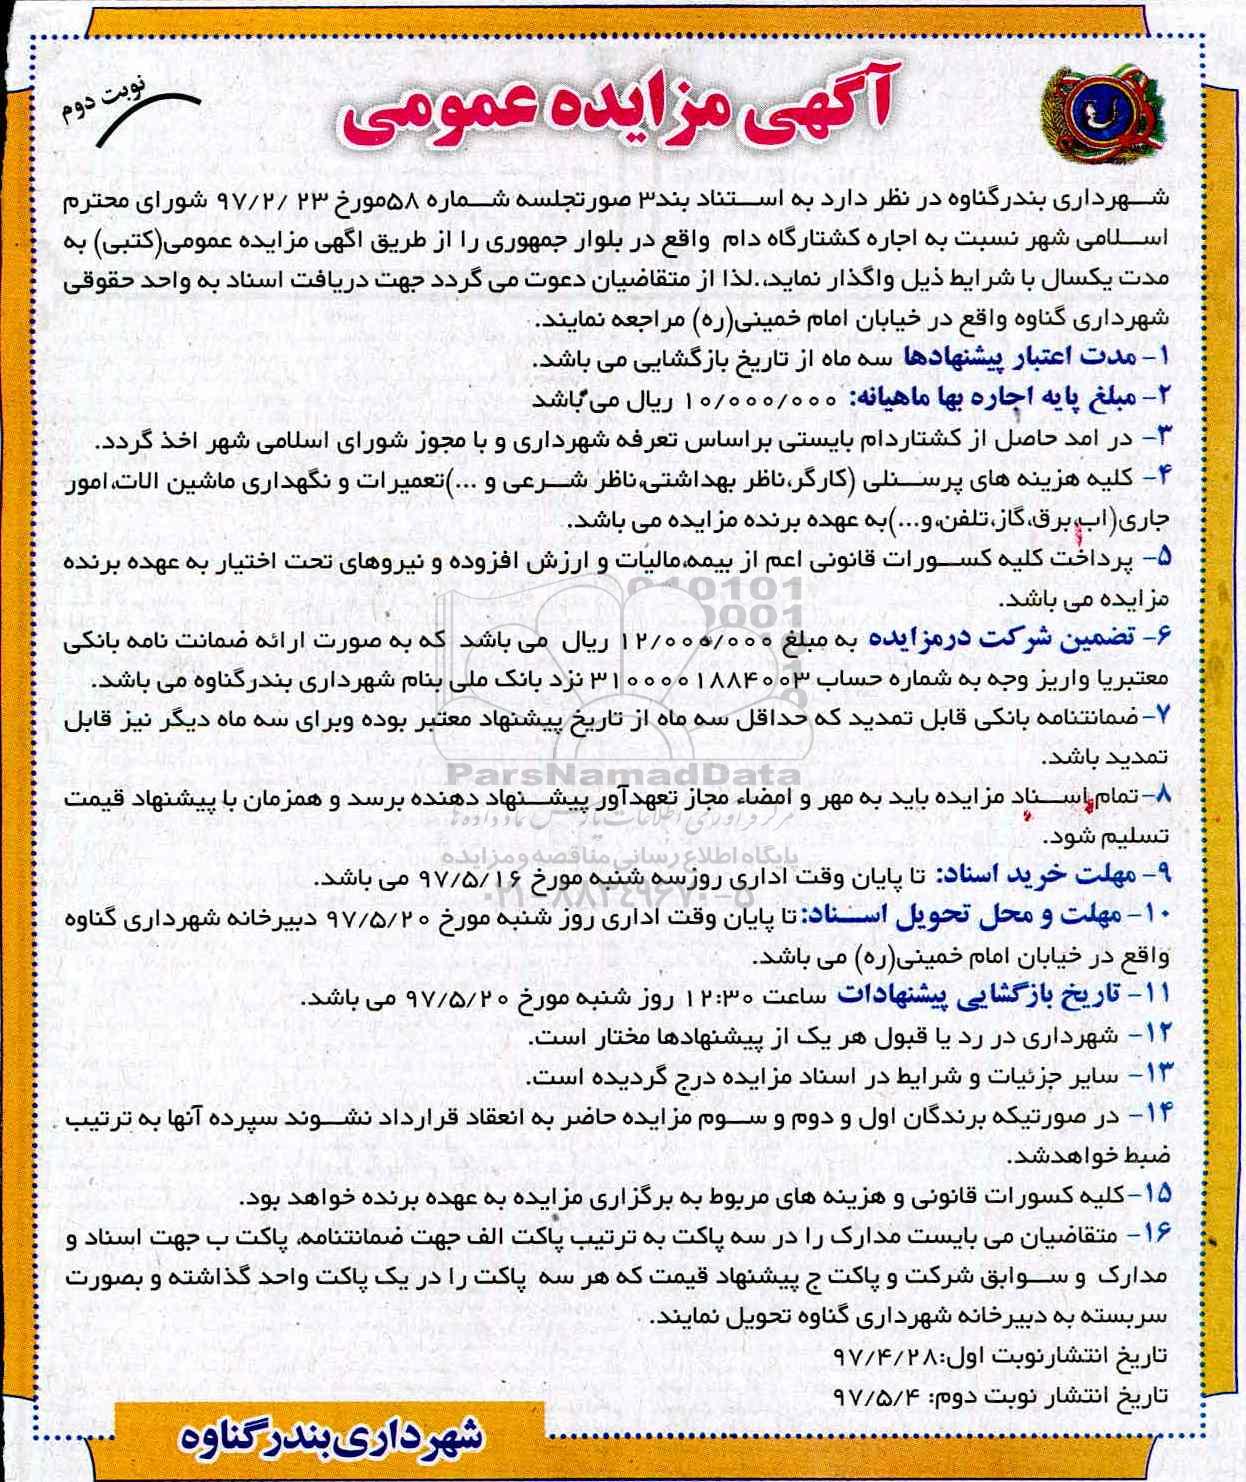 آگهی مزایده عمومی
نوبت دوم
شهرداری بندرگناوه در نظر دارد به استناد بند۳ صورتجلسه شماره ۵۸مورخ ۲۳ /۹۷/۲ شورای محترم
اسلامی شهر نسبت به اجاره کشتارگاه دام واقع در بلوار جمهوری را از طریق اگهی مزایده عمومی(کتبی) به
مدت یکسال با شرایط ذیل واگذار نماید،.لذا از متقاضیان دعوت می گردد جهت دریافت اسناد به واحد حقوقی
شهرداری گناوه واقع در خیابان امام خمینی(ره) مراجعه نمایند.
۱- مدت اعتبار پیشنهادها سه ماه از تاریخ بازگشایی می باشد.
۲- مبلغ پایه اجاره بها ماهیانه: ۱۰/۰۰۰/۰۰۰ ریال می باشد
۳- در امد حاصل از کشتاردام بایستی براساس تعرفه شهرداری و با مجوز شورای اسلامی شهر اخذ گردد.
۴- کلیه هزینه های پرسنلی (کارگر،ناظر بهداشتی،ناظر شرعی و ...)تعمیرات و نگهداری ماشین الات،امور
جاری(اب،برق،گاز،تلفن،و...)به عهده برنده مزایده می باشد.
۵- پرداخت کلیه کسورات قانونی اعم از بیمه،مالیات و ارزش افزوده و نیروهای تحت اختیار به عهده برنده
مزایده می باشد.
۶- تضمین شرکت درمزایده به مبلغ ۱۲/۰۰۰/۰۰۰ ریال می باشد که به صورت ارائه ضمانت نامه بانکی
معتبریا واریز وجه به شماره حساب ۳۱۰۰۰۰۱۸۸۴۰۰۳ نزد بانک ملی بنام شهرداری بندرگناوه می باشد.
۷-ضمانتنامه بانکی قابل تمدید که حداقل سه ماه از تاریخ پیشنهاد معتبر بوده وبرای سه ماه دیگر نیز قابل
تمدید باشد.
۸-تمام اسناد مزایده باید به مهر و امضاء مجاز تعهدآور پیشنهاد دهنده برسد و همزمان با پیشنهاد قیمت
تسلیم شود.
۹- مهلت خرید اسناد: تا پایان وقت اداری روزسه شنبه مورخ ۹۷/۵/۱۶ می باشد.
۱۰- مهلت و محل تحویل اسناد:تا پایان وقت اداری روز شنبه مورخ ۹۷/۵/۲۰ دبیرخانه شهرداری گناوه
واقع در خیابان امام خمینی(ره) می باشد.
۱۱- تاریخ بازگشایی پیشنهادات ساعت ۱۲:۳۰ روز شنبه مورخ ۹۷/۵/۲۰ می باشد.
۱۲- شهرداری در رد یا قبول هر یک از پیشنهادها مختار است.
۱۳- سایر جزئیات و شرایط در اسناد مزایده درج گردیده است.
۱۴- در صورتیکه برندگان اول و دوم و سوم مزایده حاضر به انعقاد قرارداد نشوند سپرده آنها به ترتیب
ضبط خواهدشد.
۱۵-کلیه کسورات قانونی و هزینه های مربوط به برگزاری مزایده به عهده برنده خواهد بود.
۱۶- متقاضیان می بایست مدارک را در سه پاکت به ترتیب پاکت الف جهت ضمانتنامه، پاکت ب جهت اسناد و
مدارک و سوابق شرکت و پاکت ج پیشنهاد قیمت که هر سه پاکت را در یک پاکت واحد گذاشته و بصورت
سربسته به دبیرخانه شهرداری گناوه تحویل نمایند.
تاریخ انتشارنوبت اول:۹۷/۴/۲۸
تاریخ انتشار نوبت دوم: ۹۷/۵/۴
شهرداری بندرگناوه
ParsNamadData
مرکز فرآوری اطلاعات پارس نماد داده ها
پایگاه اطلاع رسانی مناقصه و مزایده
۰۲۱-۸۸۳۴۹۶۷۰-۵